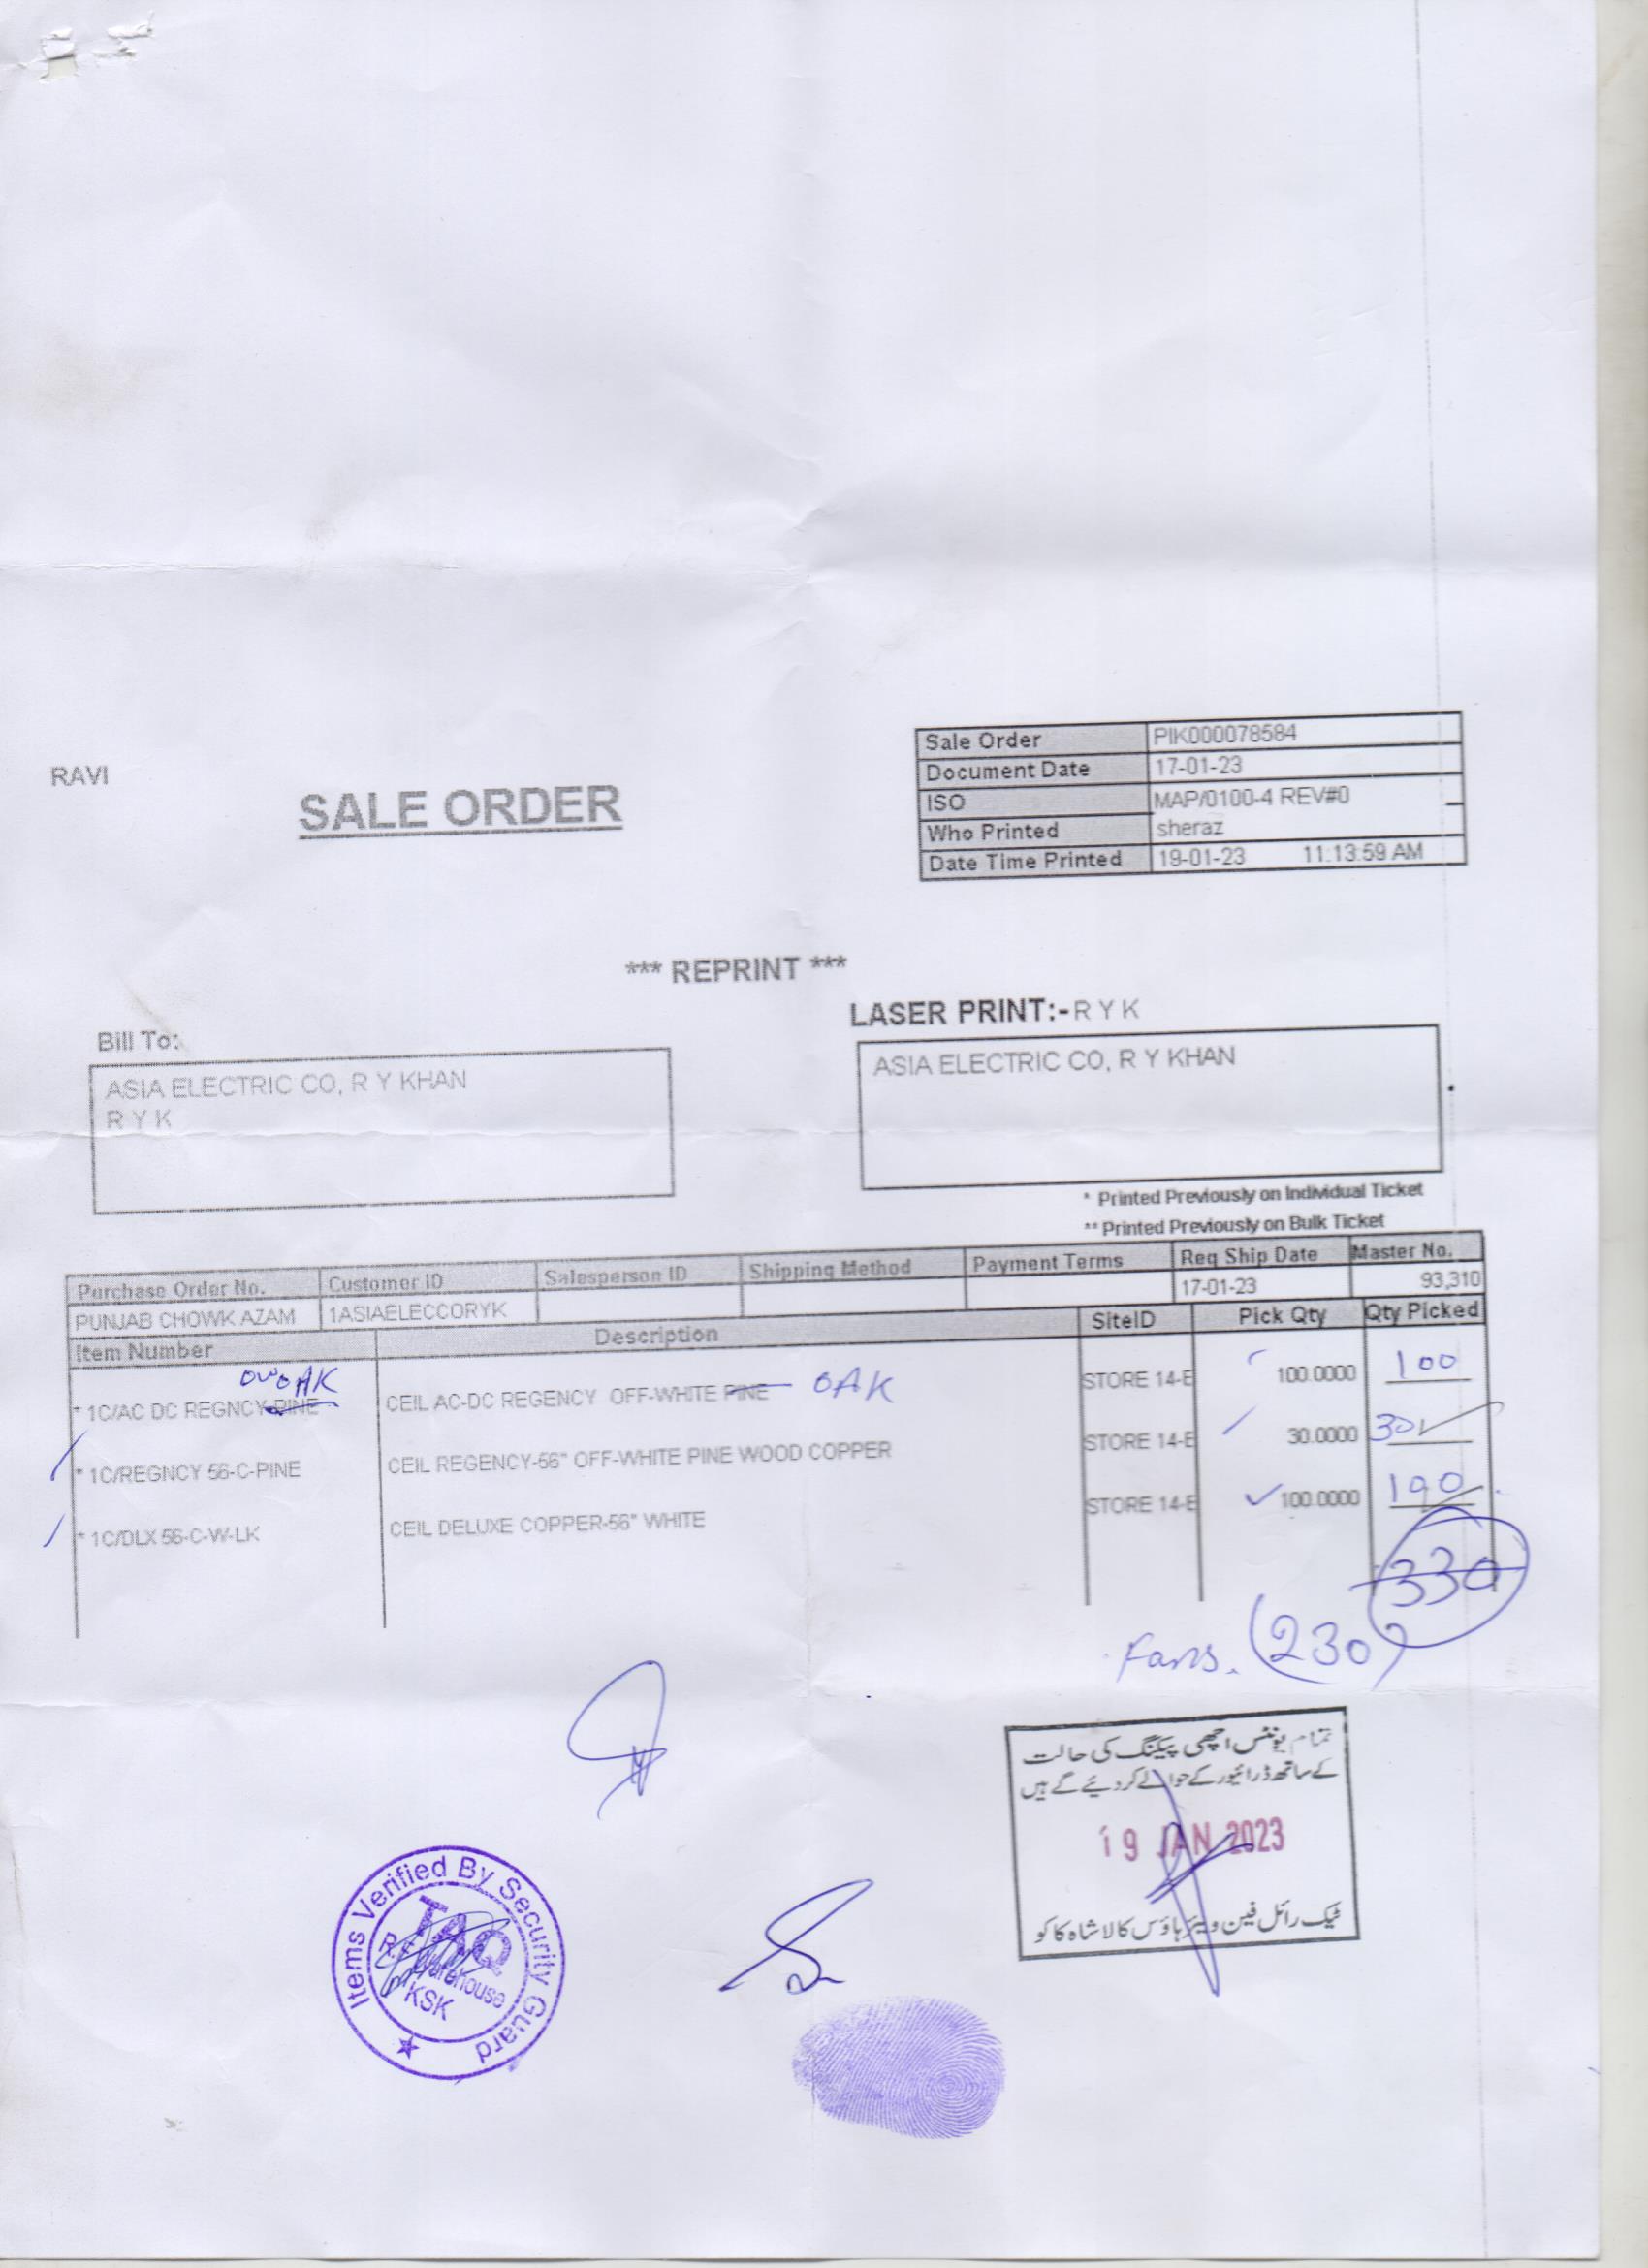 Sale Order PIK000078584
Document Date 17-01-23
ISO MAP/0100-4 REV#0
Who Printed sheraz
Date Time Printed 19-01-23 11:13:59 AM
RAVI
SALE ORDER
*** REPRINT ***
LASER PRINT:- R Y K
Bill To:
ASIA ELECTRIC CO, R Y KHAN
R Y K
ASIA ELECTRIC CO, R Y KHAN
* Printed Previously on Individual Ticket
** Printed Previously on Bulk Ticket
Purchase Order No. Customer ID Salesperson ID Shipping Method Payment Terms Req Ship Date Master No.
PUNJAB CHOWK AZAM 1ASIAELECCORYK 17-01-23 93,310
Item Number Description SiteID Pick Qty Qty Picked
OWOAK
* 1C/AC DC REGNCY-PINE CEIL AC-DC REGENCY OFF-WHITE PINE OAK STORE 14-E 100.0000 100
* 1C/REGNCY 56-C-PINE CEIL REGENCY-56" OFF-WHITE PINE WOOD COPPER STORE 14-E 30.0000 30
* 1C/DLX 56-C-W-LK CEIL DELUXE COPPER-56" WHITE STORE 14-E 100.0000 100
330
Fans. (230)
تمام یونٹس اچھی پیکنگ کی حالت
کے ساتھ ڈرائیور کے حوالے کر دیئے گے ہیں
19 JAN 2023
ٹیک رائل فین ویئر ہاؤس کالا شاہ کاکو
Items Verified By Security Guard
TAQ
Warehouse
KSK